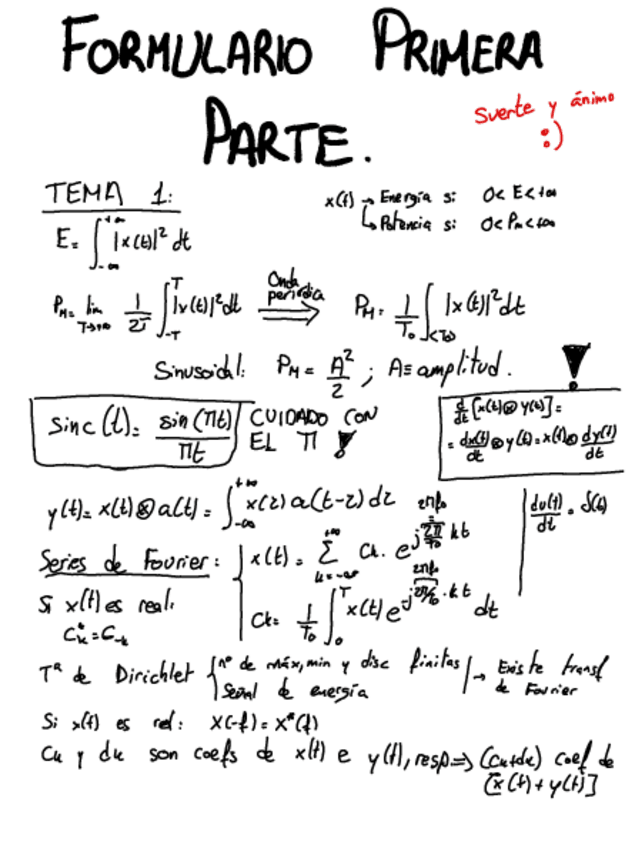 FORMULARIO PRIMERA
PARTE.
Suerte y ánimo
:)
TEMA 1:
x(t) → Energía si: 0 < E < +∞
↳ Potencia si: 0 < Pm < +∞
E = ∫_{-∞}^{+∞} |x(t)|² dt
P_M = lim_{T→+∞} 1/2T ∫_{-T}^{T} |x(t)|² dt ⟹ Onda periódica P_M = 1/T₀ ∫_{<T₀>} |x(t)|² dt
Sinusoidal: P_M = A²/2 ; A ≡ amplitud.
Sinc(t) = sin(πt)/πt
CUIDADO CON
EL π !
!
d/dt [x(t) ⊗ y(t)] =
= dx(t)/dt ⊗ y(t) = x(t) ⊗ dy(t)/dt
y(t) = x(t) ⊗ a(t) = ∫_{-∞}^{+∞} x(z) a(t-z) dz
du(t)/dt = δ(t)
Series de Fourier: x(t) = Σ_{k=-∞}^{+∞} Ck · e^{j 2π/T₀ kt}
2πf₀
Si x(t) es real:
C*_k = C_{-k}
Ck = 1/T₀ ∫_0^T x(t) e^{-j 2π/T₀ · kt} dt
2πf₀
Tª de Dirichlet { nº de máx, min y disc finitas | → Existe transf
Señal de energía de Fourier
Si x(t) es real: X(-f) = X*(f)
Ck y dk son coefs de x(t) e y(t), resp ⟹ (Ck+dk) coef de
[x(t) + y(t)]